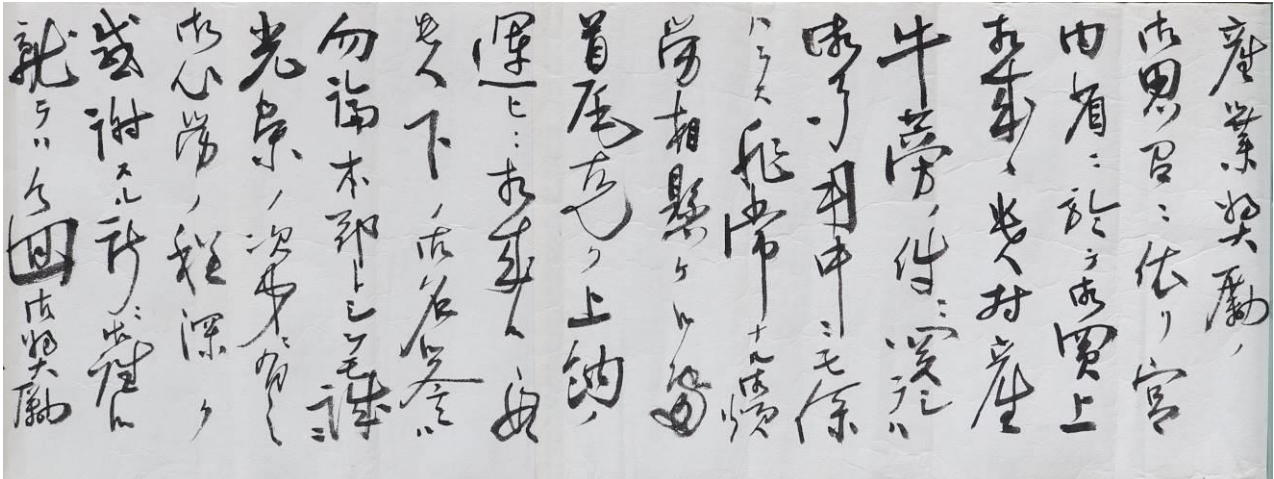 産業奨励ノ
御思召ニ依リ宮
内省ニ於テ御買上
相成候貴村産
牛蒡ノ件ニ関シテハ
御多用中ニモ余
ハラス非常ナル御煩
労相懸ケ候処
首尾克ク上納ノ
運ヒニ相成候段
貴下ノ御名誉ハ
勿論本郡トシテモ誠ニ
光栄ノ次第ニ有之
御心労ノ程深ク
感謝スル所ニ御座候
就テハ今回御奨励